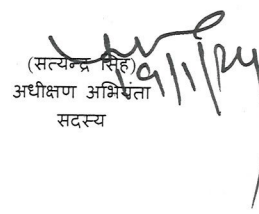 (सत्येन्द्र सिंह)
19/1/24
अधीक्षण अभियंता
सदस्य